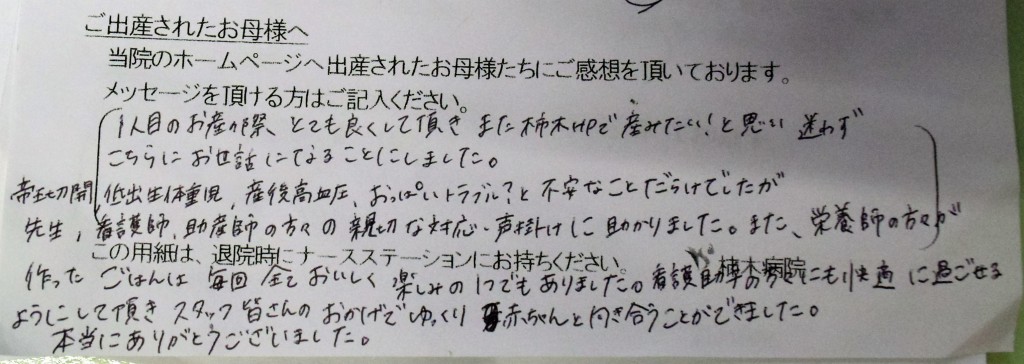 ご出産されたお母様へ
当院のホームページへ出産されたお母様たちにご感想を頂いております。
メッセージを頂ける方はご記入ください。
1人目のお産の際、とても良くして頂き また柿木HPで産みたい!と思い 迷わず
こちらにお世話になることにしました。
帝王切開、低出生体重児、産後高血圧、おっぱいトラブル?と不安なことだらけでしたが
先生、看護師、助産師の方々の親切な対応・声掛けに助かりました。また、栄養師の方々が
この用紙は、退院時にナースステーションにお持ちください。 柿木病院
作ったごはんは毎回全ておいしく楽しみの1つでもありました。看護助 にも快適に過ごせる
ようにして頂き スタッフ皆さんのおかげでゆっくり 赤ちゃんと向き合うことができました。
本当にありがとうございました。